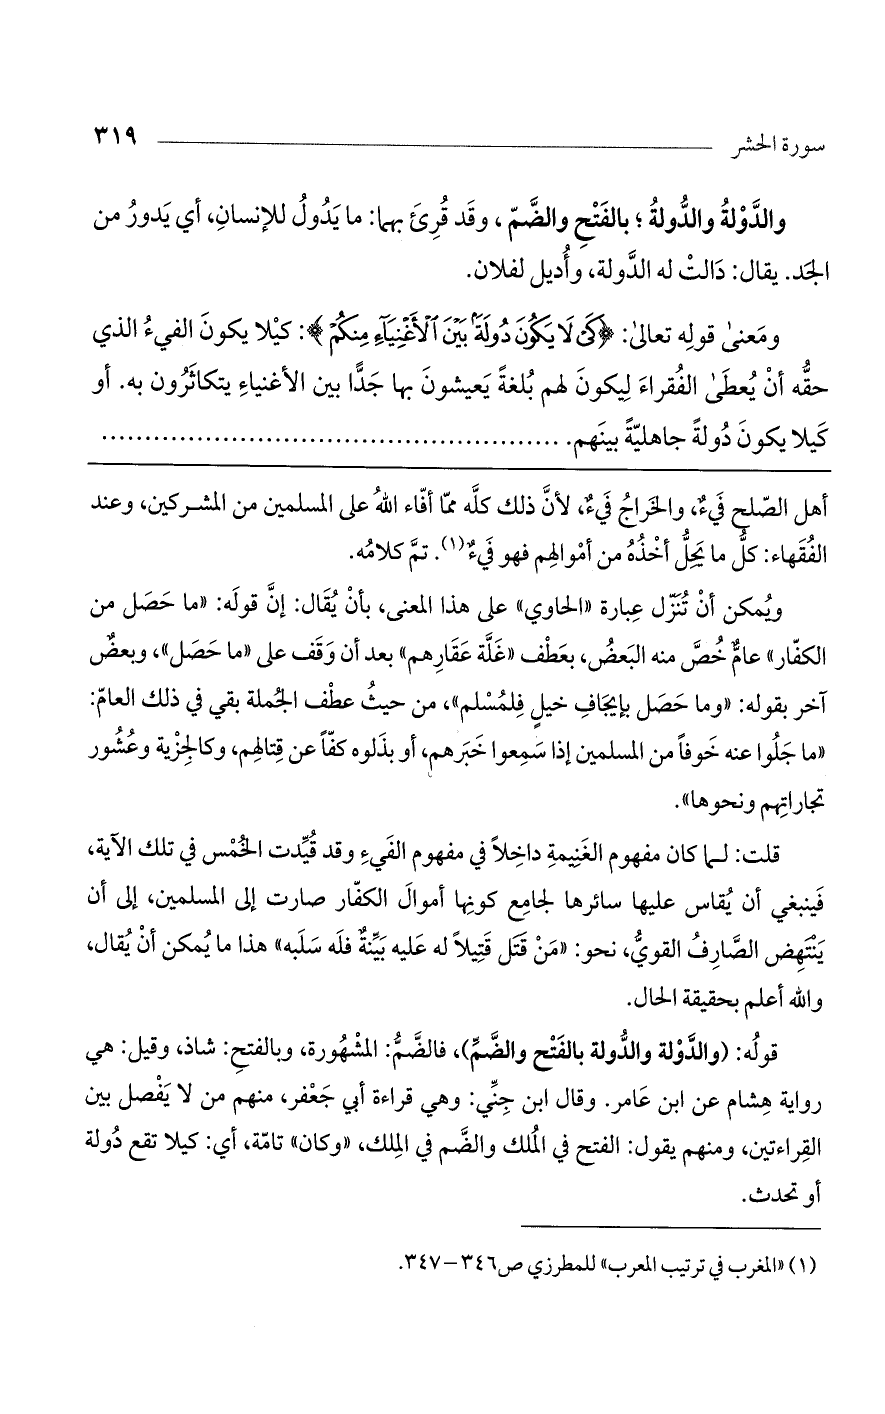 سورة الحشر ٣١٩
والدَّوْلةُ والدُّولةُ ؛ بالفَتْحِ والضَّمّ ، وقَد قُرِئَ بهما: ما يَدُولُ للإنسانِ، أي يَدورُ من
الجَد. يقال: دَالتْ له الدَّولة، وأُديل لفلان.
ومَعنىٰ قولِه تعالىٰ: ﴿كَىْ لَا يَكُونَ دُولَةًۢ بَيْنَ ٱلْأَغْنِيَآءِ مِنكُمْ﴾: كيْلا يكونَ الفيءُ الذي
حقُّه أنْ يُعطَىٰ الفُقراءَ لِيكونَ لهم بُلغةً يَعيشونَ بها جَدًّا بين الأغنياءِ يتكاثَرُون به. أو
كَيلا يكونَ دُولةً جاهليّةً بينَهم. .....................................................
أهل الصّلح فَيءٌ، والخَراجُ فَيءٌ، لأنَّ ذلك كلَّه ممّا أفّاء اللهُ على المسلمين من المشركين، وعند
الفُقَهاء: كلُّ ما يَحِلُّ أخْذُهُ من أمْوالهِم فهو فَيءٌ(١). تمَّ كلامُه.
ويُمكن أنْ تُنَزّل عِبارة «الحاوي» على هذا المعنى، بأنْ يُقَال: إنَّ قولَه: «ما حَصَل من
الكفّار» عامٌّ خُصَّ منه البَعضُ، بعَطْف «غَلَّة عَقَارِهم» بعد أن وَقَف على «ما حَصَل»، وبعضٌ
آخر بقوله: «وما حَصَل بإيجَافِ خيلٍ فِلمُسْلم»، من حيثُ عطْف الجُملة بقي في ذلك العامّ:
«ما جَلُوا عنه خَوفاً من المسلمين إذا سَمِعوا خَبَرهم، أو بذَلوه كفّاً عن قِتالهِم، وكالجِزْية وعُشُور
تجاراتِهم ونحوها».
قلت: لـما كان مفهوم الغَنِيمةِ داخِلاً في مفهوم الفَيءِ وقد قُيِّدت الخُمْس في تلك الآية،
فَينبغي أن يُقاس عليها سائرها لجامِع كونِها أموالَ الكفّار صارت إلى المسلمين، إلى أن
يَنْتَهِض الصَّارِفُ القويُّ، نحو: «مَنْ قَتَل قَتِيلاً له عَليه بَيِّنةٌ فلَه سَلَبه» هذا ما يُمكن أنْ يُقال،
والله أعلم بحقيقة الحال.
قولُه: (والدَّوْلة والدُّولة بالفَتْح والضَّمِّ)، فالضَّمُّ: المشْهُورة، وبالفتحِ: شاذ، وقيل: هي
رواية هِشام عن ابن عَامر. وقال ابن جِنِّي: وهي قراءة أبي جَعْفر، منهم من لا يَفْصل بين
القِراءتين، ومنهم يقول: الفتح في المُلك والضَّم في المِلك، «وكان» تامّة، أي: كيلا تقع دُولة
أو تحدث.
(١) «المغرب في ترتيب المعرب» للمطرزي ص٣٤٦-٣٤٧.